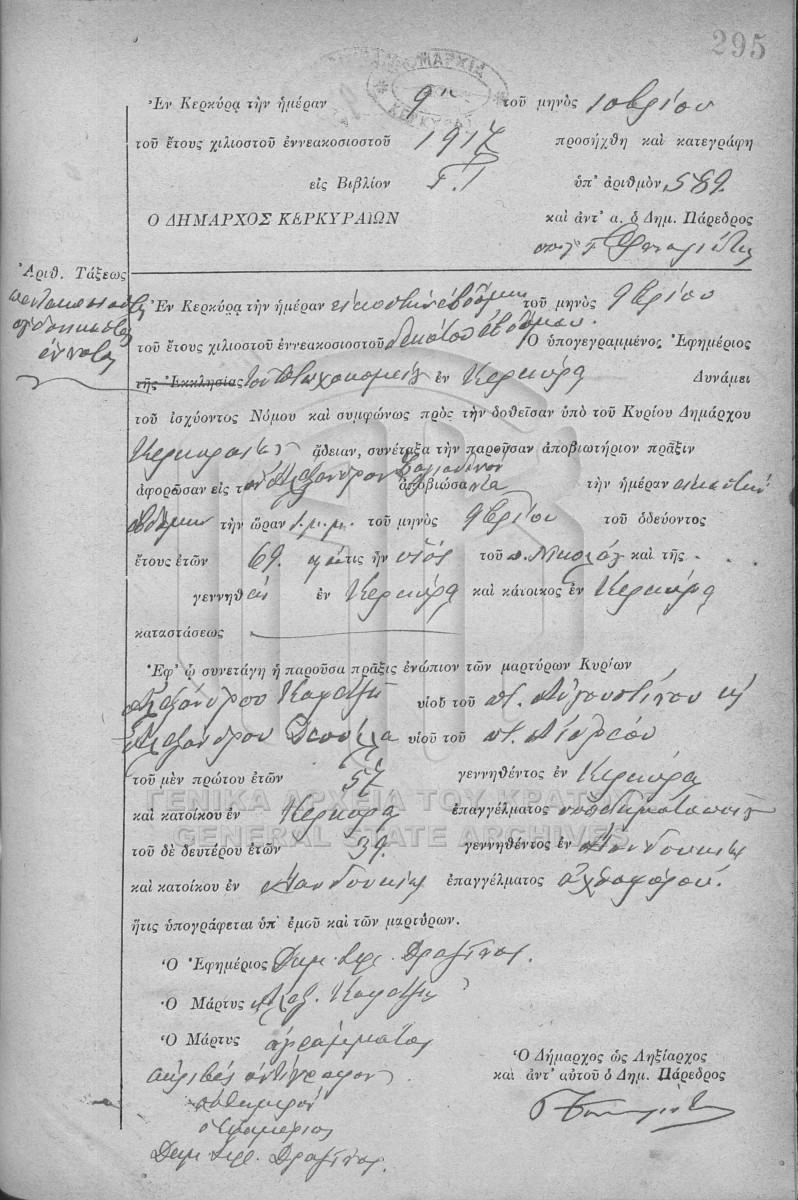 295
ΔΗΜΑΡΧΙΑ
ΚΕΡΚΥΡΑΣ
Ἐν Κερκύρᾳ τὴν ἡμέραν 9ην τοῦ μηνὸς 10βρίου
τοῦ ἔτους χιλιοστοῦ ἐννεακοσιοστοῦ 1917 προσήχθη καὶ κατεγράφη
εἰς Βιβλίον ὑπ' ἀριθμὸν 589.
Ο ΔΗΜΑΡΧΟΣ ΚΕΡΚΥΡΑΙΩΝ καὶ ἀντ' α. ὁ Δημ. Πάρεδρος
Ἀριθ. Τάξεως
πεντακοσιοστὴ
ὀγδοηκοστὴ
ἐννάτη
Ἐν Κερκύρᾳ τὴν ἡμέραν εἰκοστὴν ἑβδόμην τοῦ μηνὸς 9βρίου
τοῦ ἔτους χιλιοστοῦ ἐννεακοσιοστοῦ δεκάτου ἑβδόμου. Ὁ ὑπογεγραμμένος Ἐφημέριος
τῆς Ἐκκλησίας τοῦ Πτωχοκομείου ἐν Κερκύρᾳ Δυνάμει
τοῦ ἰσχύοντος Νόμου καὶ συμφώνως πρὸς τὴν δοθεῖσαν ὑπὸ τοῦ Κυρίου Δημάρχου
Κερκυραίων ἄδειαν, συνέταξα τὴν παροῦσαν ἀποβιωτήριον πρᾶξιν
ἀφορῶσαν εἰς τὸν Ἀλέξανδρον ἀποβιώσαντα τὴν ἡμέραν εἰκοστὴν
ἑβδόμην τὴν ὥραν 1 μ.μ. τοῦ μηνὸς 9βρίου τοῦ ὁδεύοντος
ἔτους ἐτῶν 69. ὅστις ἦν υἱὸς τοῦ π. Νικολάου καὶ τῆς . .
γεννηθεὶς ἐν Κερκύρᾳ καὶ κάτοικος ἐν Κερκύρᾳ
καταστάσεως
Ἐφ' ᾧ συνετάγη ἡ παροῦσα πρᾶξις ἐνώπιον τῶν μαρτύρων Κυρίων
Ἀλεξάνδρου Καρατζᾶ υἱοῦ τοῦ π. Αὐγουστίνου κ
Ἀλεξάνδρου υἱοῦ τοῦ π.
τοῦ μὲν πρώτου ἐτῶν 57 γεννηθέντος ἐν Κερκύρᾳ
καὶ κατοίκου ἐν Κερκύρᾳ ἐπαγγέλματος ὑποδηματοποιὸς
τοῦ δὲ δευτέρου ἐτῶν 39. γεννηθέντος ἐν Μανδουκίῳ
καὶ κατοίκου ἐν Μανδουκίῳ ἐπαγγέλματος ἀχθοφόρου.
ἥτις ὑπογράφεται ὑπ' ἐμοῦ καὶ τῶν μαρτύρων.
Ὁ Ἐφημέριος Δημ.
Ὁ Μάρτυς Ἀλέξ. Καρατζᾶς
Ὁ Μάρτυς ἀγράμματος
ἀκριβὲς ἀντίγραφον
αὐθημερόν
ὁ Ἐφημέριος
Δημ.
Ὁ Δήμαρχος ὡς Ληξίαρχος
καὶ ἀντ' αὐτοῦ ὁ Δημ. Πάρεδρος
ΓΕΝΙΚΑ ΑΡΧΕΙΑ ΤΟΥ ΚΡΑΤΟΥΣ
GENERAL STATE ARCHIVES